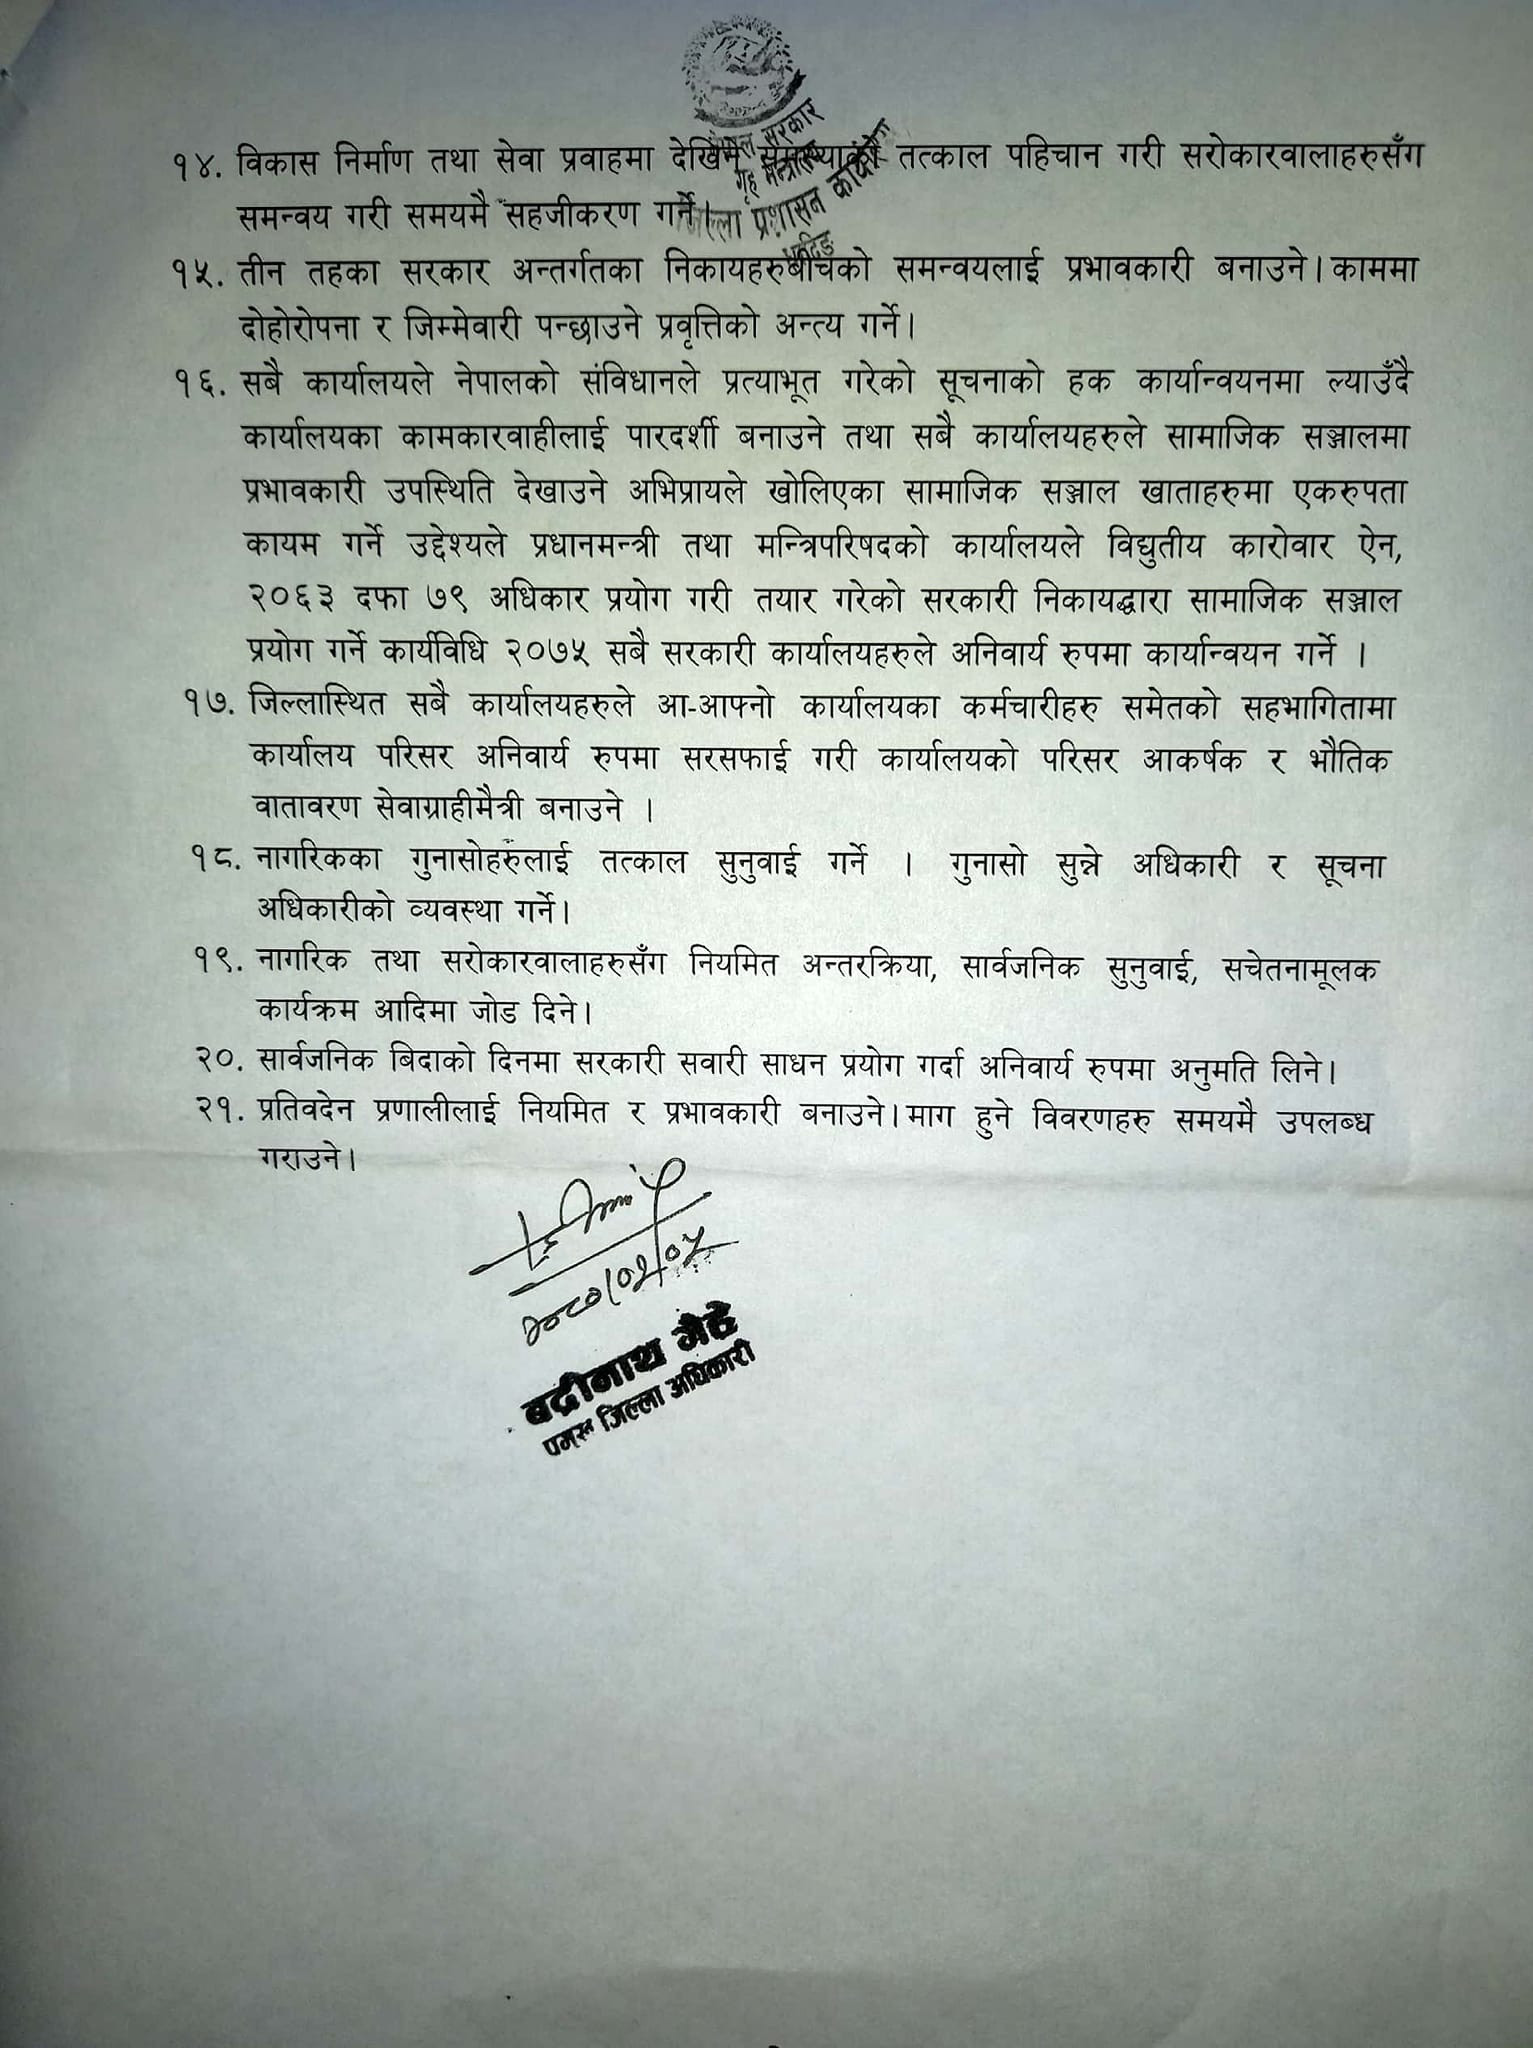 नेपाल सरकार
गृह मन्त्रालय
जिल्ला प्रशासन कार्यालय
धादिङ
१४. विकास निर्माण तथा सेवा प्रवाहमा देखिने समस्याको तत्काल पहिचान गरी सरोकारवालाहरुसँग
समन्वय गरी समयमै सहजीकरण गर्ने।
१५. तीन तहका सरकार अन्तर्गतका निकायहरुबीचको समन्वयलाई प्रभावकारी बनाउने। काममा
दोहोरोपना र जिम्मेवारी पन्छाउने प्रवृत्तिको अन्त्य गर्ने।
१६. सबै कार्यालयले नेपालको संविधानले प्रत्याभूत गरेको सूचनाको हक कार्यान्वयनमा ल्याउँदै
कार्यालयका कामकारवाहीलाई पारदर्शी बनाउने तथा सबै कार्यालयहरुले सामाजिक सञ्जालमा
प्रभावकारी उपस्थिति देखाउने अभिप्रायले खोलिएका सामाजिक सञ्जाल खाताहरुमा एकरुपता
कायम गर्ने उद्देश्यले प्रधानमन्त्री तथा मन्त्रिपरिषदको कार्यालयले विद्युतीय कारोवार ऐन,
२०६३ दफा ७९ अधिकार प्रयोग गरी तयार गरेको सरकारी निकायद्धारा सामाजिक सञ्जाल
प्रयोग गर्ने कार्यविधि २०७५ सबै सरकारी कार्यालयहरुले अनिवार्य रुपमा कार्यान्वयन गर्ने ।
१७. जिल्लास्थित सबै कार्यालयहरुले आ-आफ्नो कार्यालयका कर्मचारीहरु समेतको सहभागितामा
कार्यालय परिसर अनिवार्य रुपमा सरसफाई गरी कार्यालयको परिसर आकर्षक र भौतिक
वातावरण सेवाग्राहीमैत्री बनाउने ।
१८. नागरिकका गुनासोहरुलाई तत्काल सुनुवाई गर्ने । गुनासो सुन्ने अधिकारी र सूचना
अधिकारीको व्यवस्था गर्ने।
१९. नागरिक तथा सरोकारवालाहरुसँग नियमित अन्तरक्रिया, सार्वजनिक सुनुवाई, सचेतनामूलक
कार्यक्रम आदिमा जोड दिने।
२०. सार्वजनिक बिदाको दिनमा सरकारी सवारी साधन प्रयोग गर्दा अनिवार्य रुपमा अनुमति लिने।
२१. प्रतिवदेन प्रणालीलाई नियमित र प्रभावकारी बनाउने। माग हुने विवरणहरु समयमै उपलब्ध
गराउने।
२०८०/०२/०५
बद्रीनाथ गैह्रे
प्रमुख जिल्ला अधिकारी